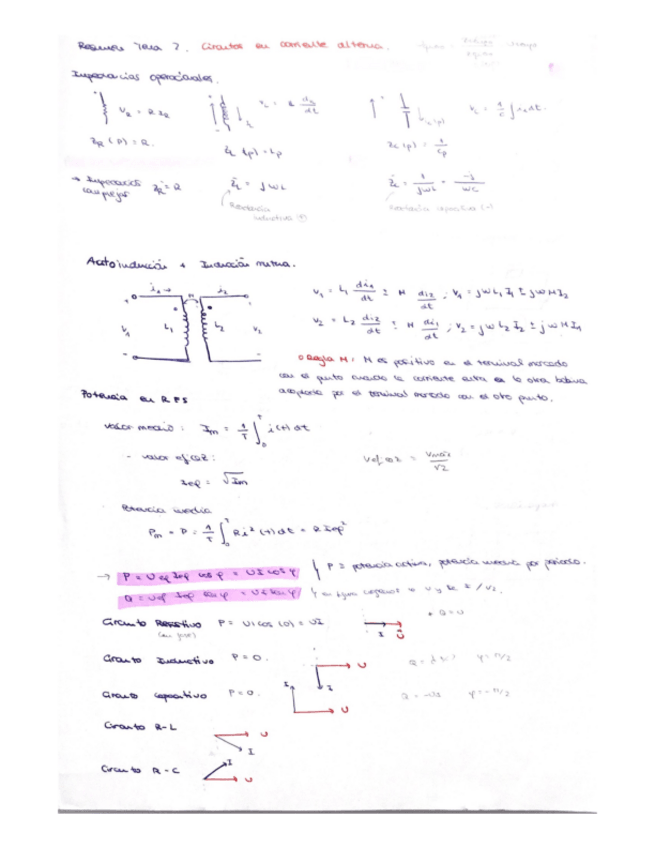 Resumen Tema 7. Circuitos en corriente alterna.
Impedancias operacionales.
V_R = R i_R
V_L = L di_L/dt
V_c = 1/C ∫ i_c dt.
Z_R (p) = R.
Z_L (p) = Lp
Z_c (p) = 1/Cp
→ Impedancias complejas Z_R = R
Z_L = jωL
Z_c = 1/jωC = -j/ωC
Reactancia inductiva (+)
Reactancia capacitiva (-)
Autoinducción + Inducción mutua.
i₁→ M i₂
V₁ L₁ L₂ V₂
V₁ = L₁ di₁/dt ± M di₂/dt ; V₁ = jωL₁ I₁ ± jωM I₂
V₂ = L₂ di₂/dt ± M di₁/dt ; V₂ = jωL₂ I₂ ± jωM I₁
○ Regla M: M es positivo en el terminal marcado
con el punto cuando la corriente entra en la otra bobina
acoplada por el terminal marcado con el otro punto.
Potencia en RPS
Valor medio: I_m = 1/T ∫₀ᵀ i(t) dt
- valor eficaz:
V eficaz = Vmáx/√2
I ef = √Im
Potencia media
P_m = P = 1/T ∫₀ᵀ R i² (t) dt = R I ef²
→ P = U ef I ef cos φ = U I cos φ
P = potencia activa, potencia media por periodo.
Q = U ef I ef sen φ = U I sen φ
+ Q = 0
Circuito Resistivo P = UI cos (0) = UI
I U
Circuito Inductivo P = 0.
U I
φ = π/2
Circuito capacitivo P = 0.
I U
Q = -UI φ = -π/2
Circuito R-L
U I
Circuito R-C
I U